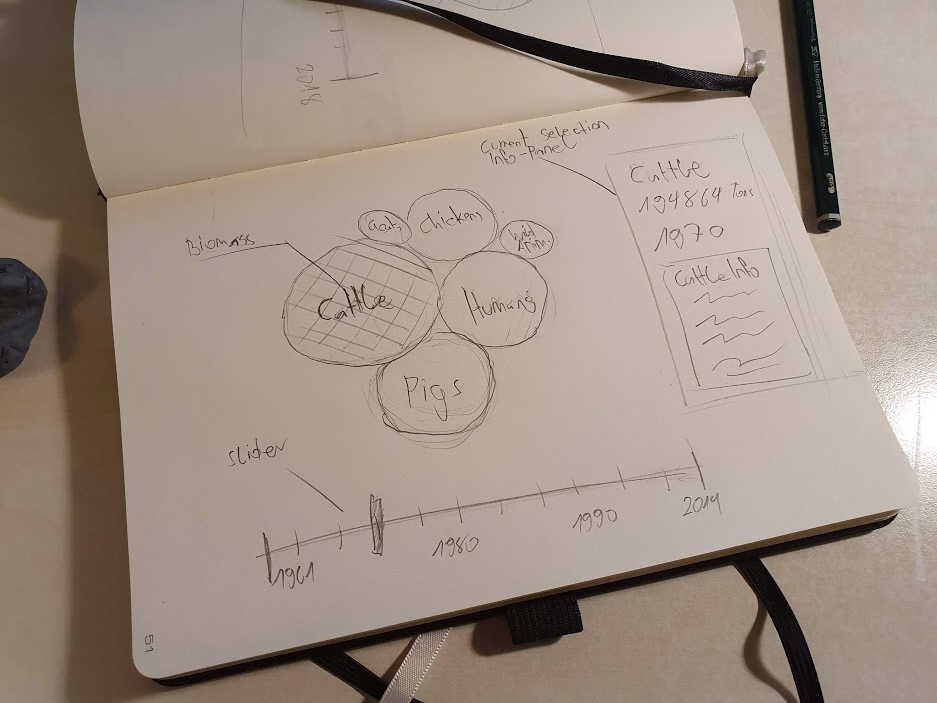 2018
Current selection
Info-Panel
Cattle
194864 Tons
1970
Cattle Info
Biomass
Goats
Chicken
Wild
Anim.
Cattle
Humans
Pigs
Slider
1961
1980
1990
2014
51